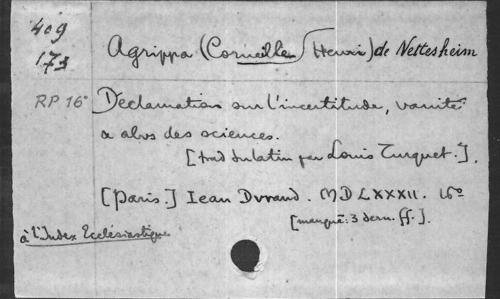 409
173
Agrippa (Corneille Henri) de Nettesheim
RP 16°
Declamation sur l'incertitude, vanité
& abus des sciences.
[trad du latin par Louis Turquet.].
[Paris.] Iean Durand. MDLXXXII. 16°
[manque: 3 dern. ff.].
à l'Index Ecclésiastique